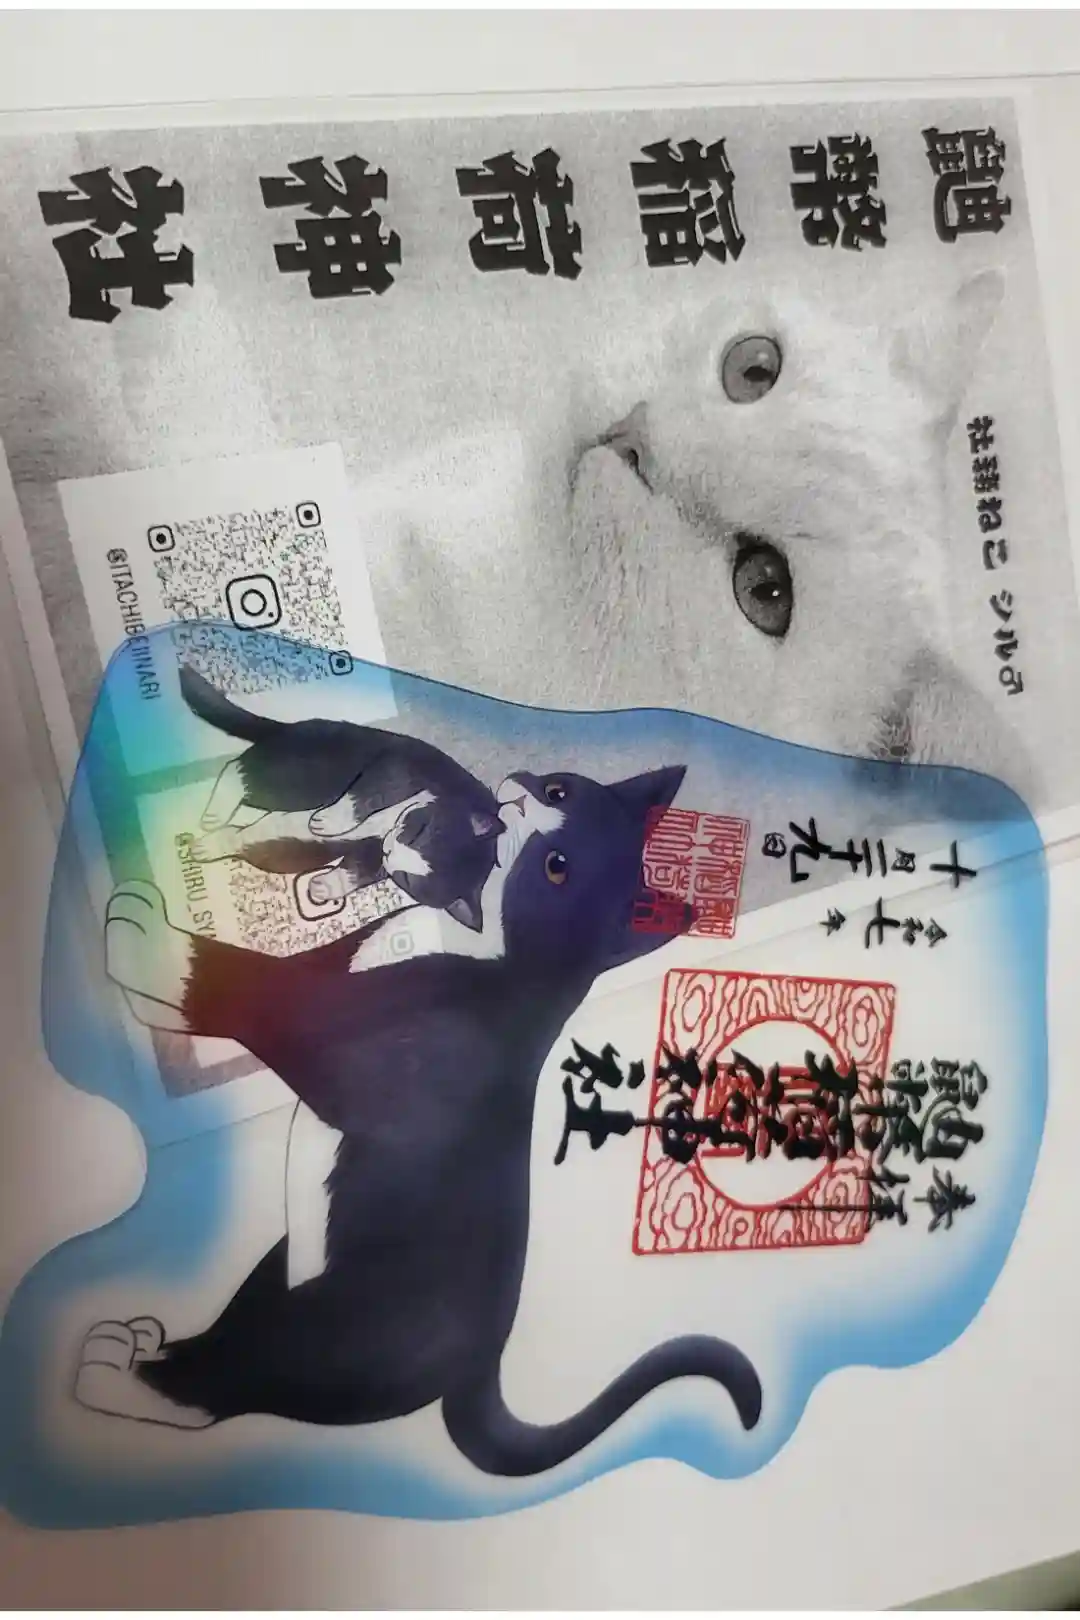 鼬幣稲荷神社
社務ねこ シル♂
@ITACHIBEIINARI
@SHIRU_SY
奉拝
鼬幣稲荷神社
令和七年
十月二十九日